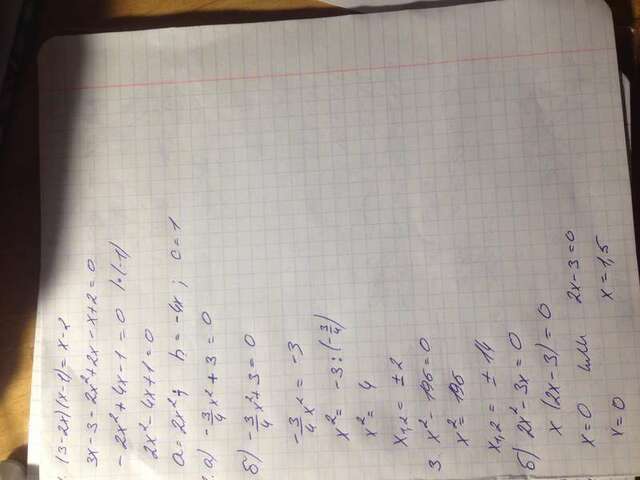 1. (3-2x)(x-1)= x-2
3x-3-2x²+2x-x+2=0
-2x²+4x-1=0 |·(-1)
2x²-4x+1=0
a=2x²; b=-4x; c=1
2. а) -3/4 x²+3=0
б) -3/4 x²+3=0
-3/4 x²= -3
x²= -3:(-3/4)
x²= 4
x₁,₂= ±2
3. x²-196=0
x²=196
x₁,₂= ±14
б) 2x²-3x=0
x(2x-3)=0
x=0 или 2x-3=0
x=0 x=1,5